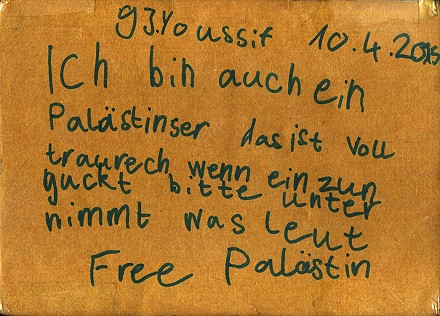 9J. Youssif 10.4.2015
Ich bin auch ein
Palästinser das ist voll
traurech wenn ein zun
guckt bitte unter
nimmt was leut
Free Palästin